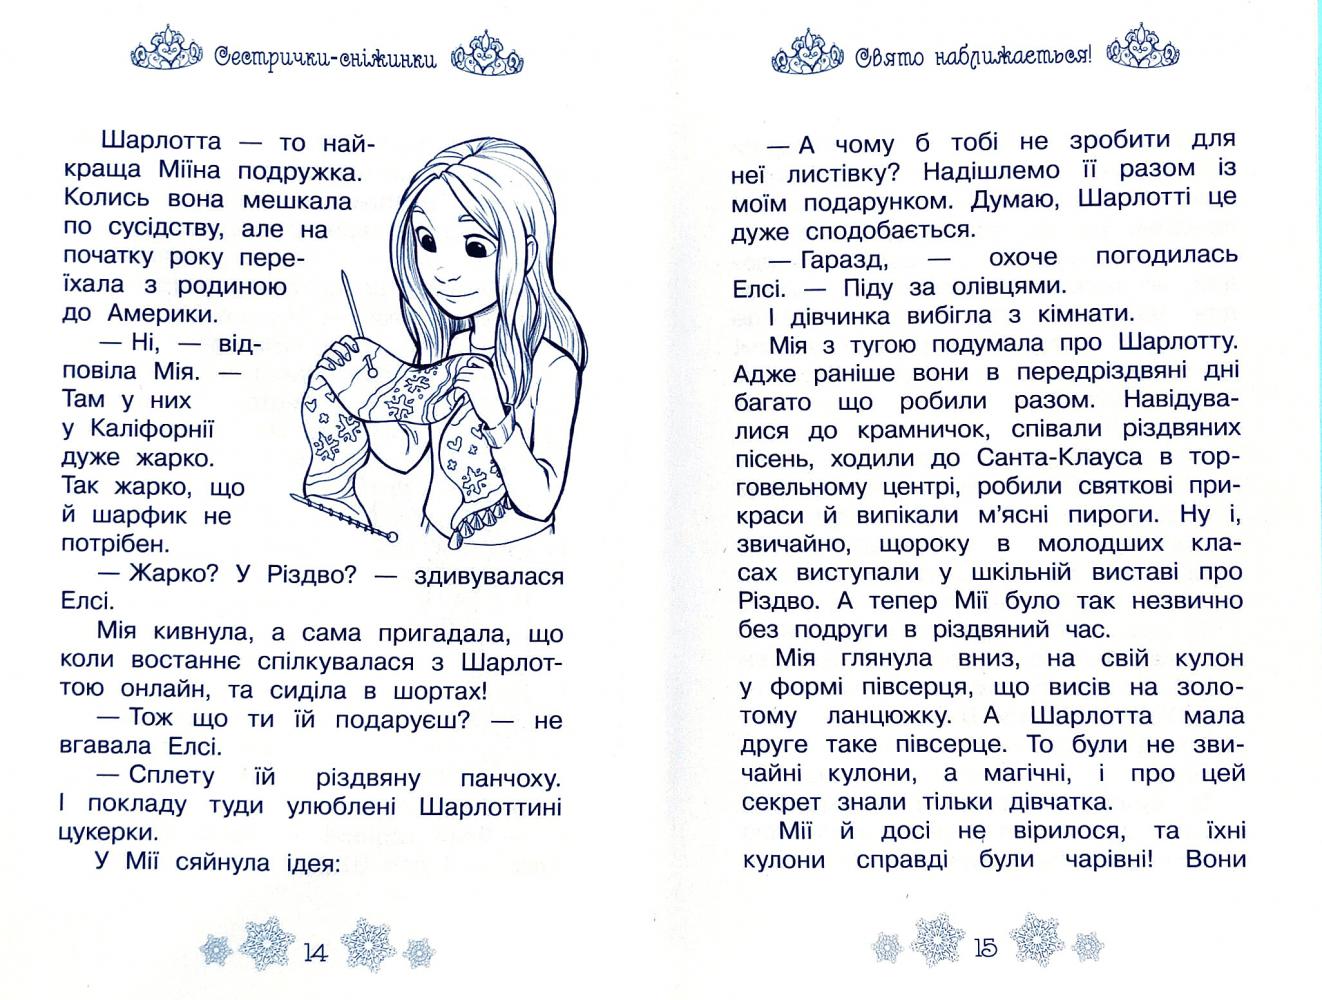 Сестрички-сніжинки
Шарлотта — то най-
краща Міїна подружка.
Колись вона мешкала
по сусідству, але на
початку року пере-
їхала з родиною
до Америки.
— Ні, — від-
повіла Мія. —
Там у них
у Каліфорнії
дуже жарко.
Так жарко, що
й шарфик не
потрібен.
— Жарко? У Різдво? — здивувалася
Елсі.
Мія кивнула, а сама пригадала, що
коли востаннє спілкувалася з Шарлот-
тою онлайн, та сиділа в шортах!
— Тож що ти їй подаруєш? — не
вгавала Елсі.
— Сплету їй різдвяну панчоху.
І покладу туди улюблені Шарлоттині
цукерки.
У Мії сяйнула ідея:
14
Свято наближається!
— А чому б тобі не зробити для
неї листівку? Надішлемо її разом із
моїм подарунком. Думаю, Шарлотті це
дуже сподобається.
— Гаразд, — охоче погодилась
Елсі. — Піду за олівцями.
І дівчинка вибігла з кімнати.
Мія з тугою подумала про Шарлотту.
Адже раніше вони в передріздвяні дні
багато що робили разом. Навідува-
лися до крамничок, співали різдвяних
пісень, ходили до Санта-Клауса в тор-
говельному центрі, робили святкові при-
краси й випікали м’ясні пироги. Ну і,
звичайно, щороку в молодших кла-
сах виступали у шкільній виставі про
Різдво. А тепер Мії було так незвично
без подруги в різдвяний час.
Мія глянула вниз, на свій кулон
у формі півсерця, що висів на золо-
тому ланцюжку. А Шарлотта мала
друге таке півсерце. То були не зви-
чайні кулони, а магічні, і про цей
секрет знали тільки дівчатка.
Мії й досі не вірилося, та їхні
кулони справді були чарівні! Вони
15